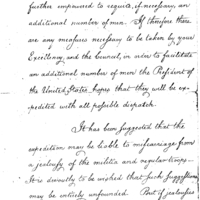 further empowered to require, if necessary, an
additional number of men. If therefore there
are any measures necessary to be taken by your
Excellency, and the Council, in order to facilitate
an additional number of men the President of
the United States hopes that they will be ex-
pedited with all possible dispatch.
It has been suggested that the
expedition may be liable to miscarriage from
a jealousy of the militia and regular troops.
It is devoutly to be wished that such suggestions
may be entirely unfounded. But if jealousies